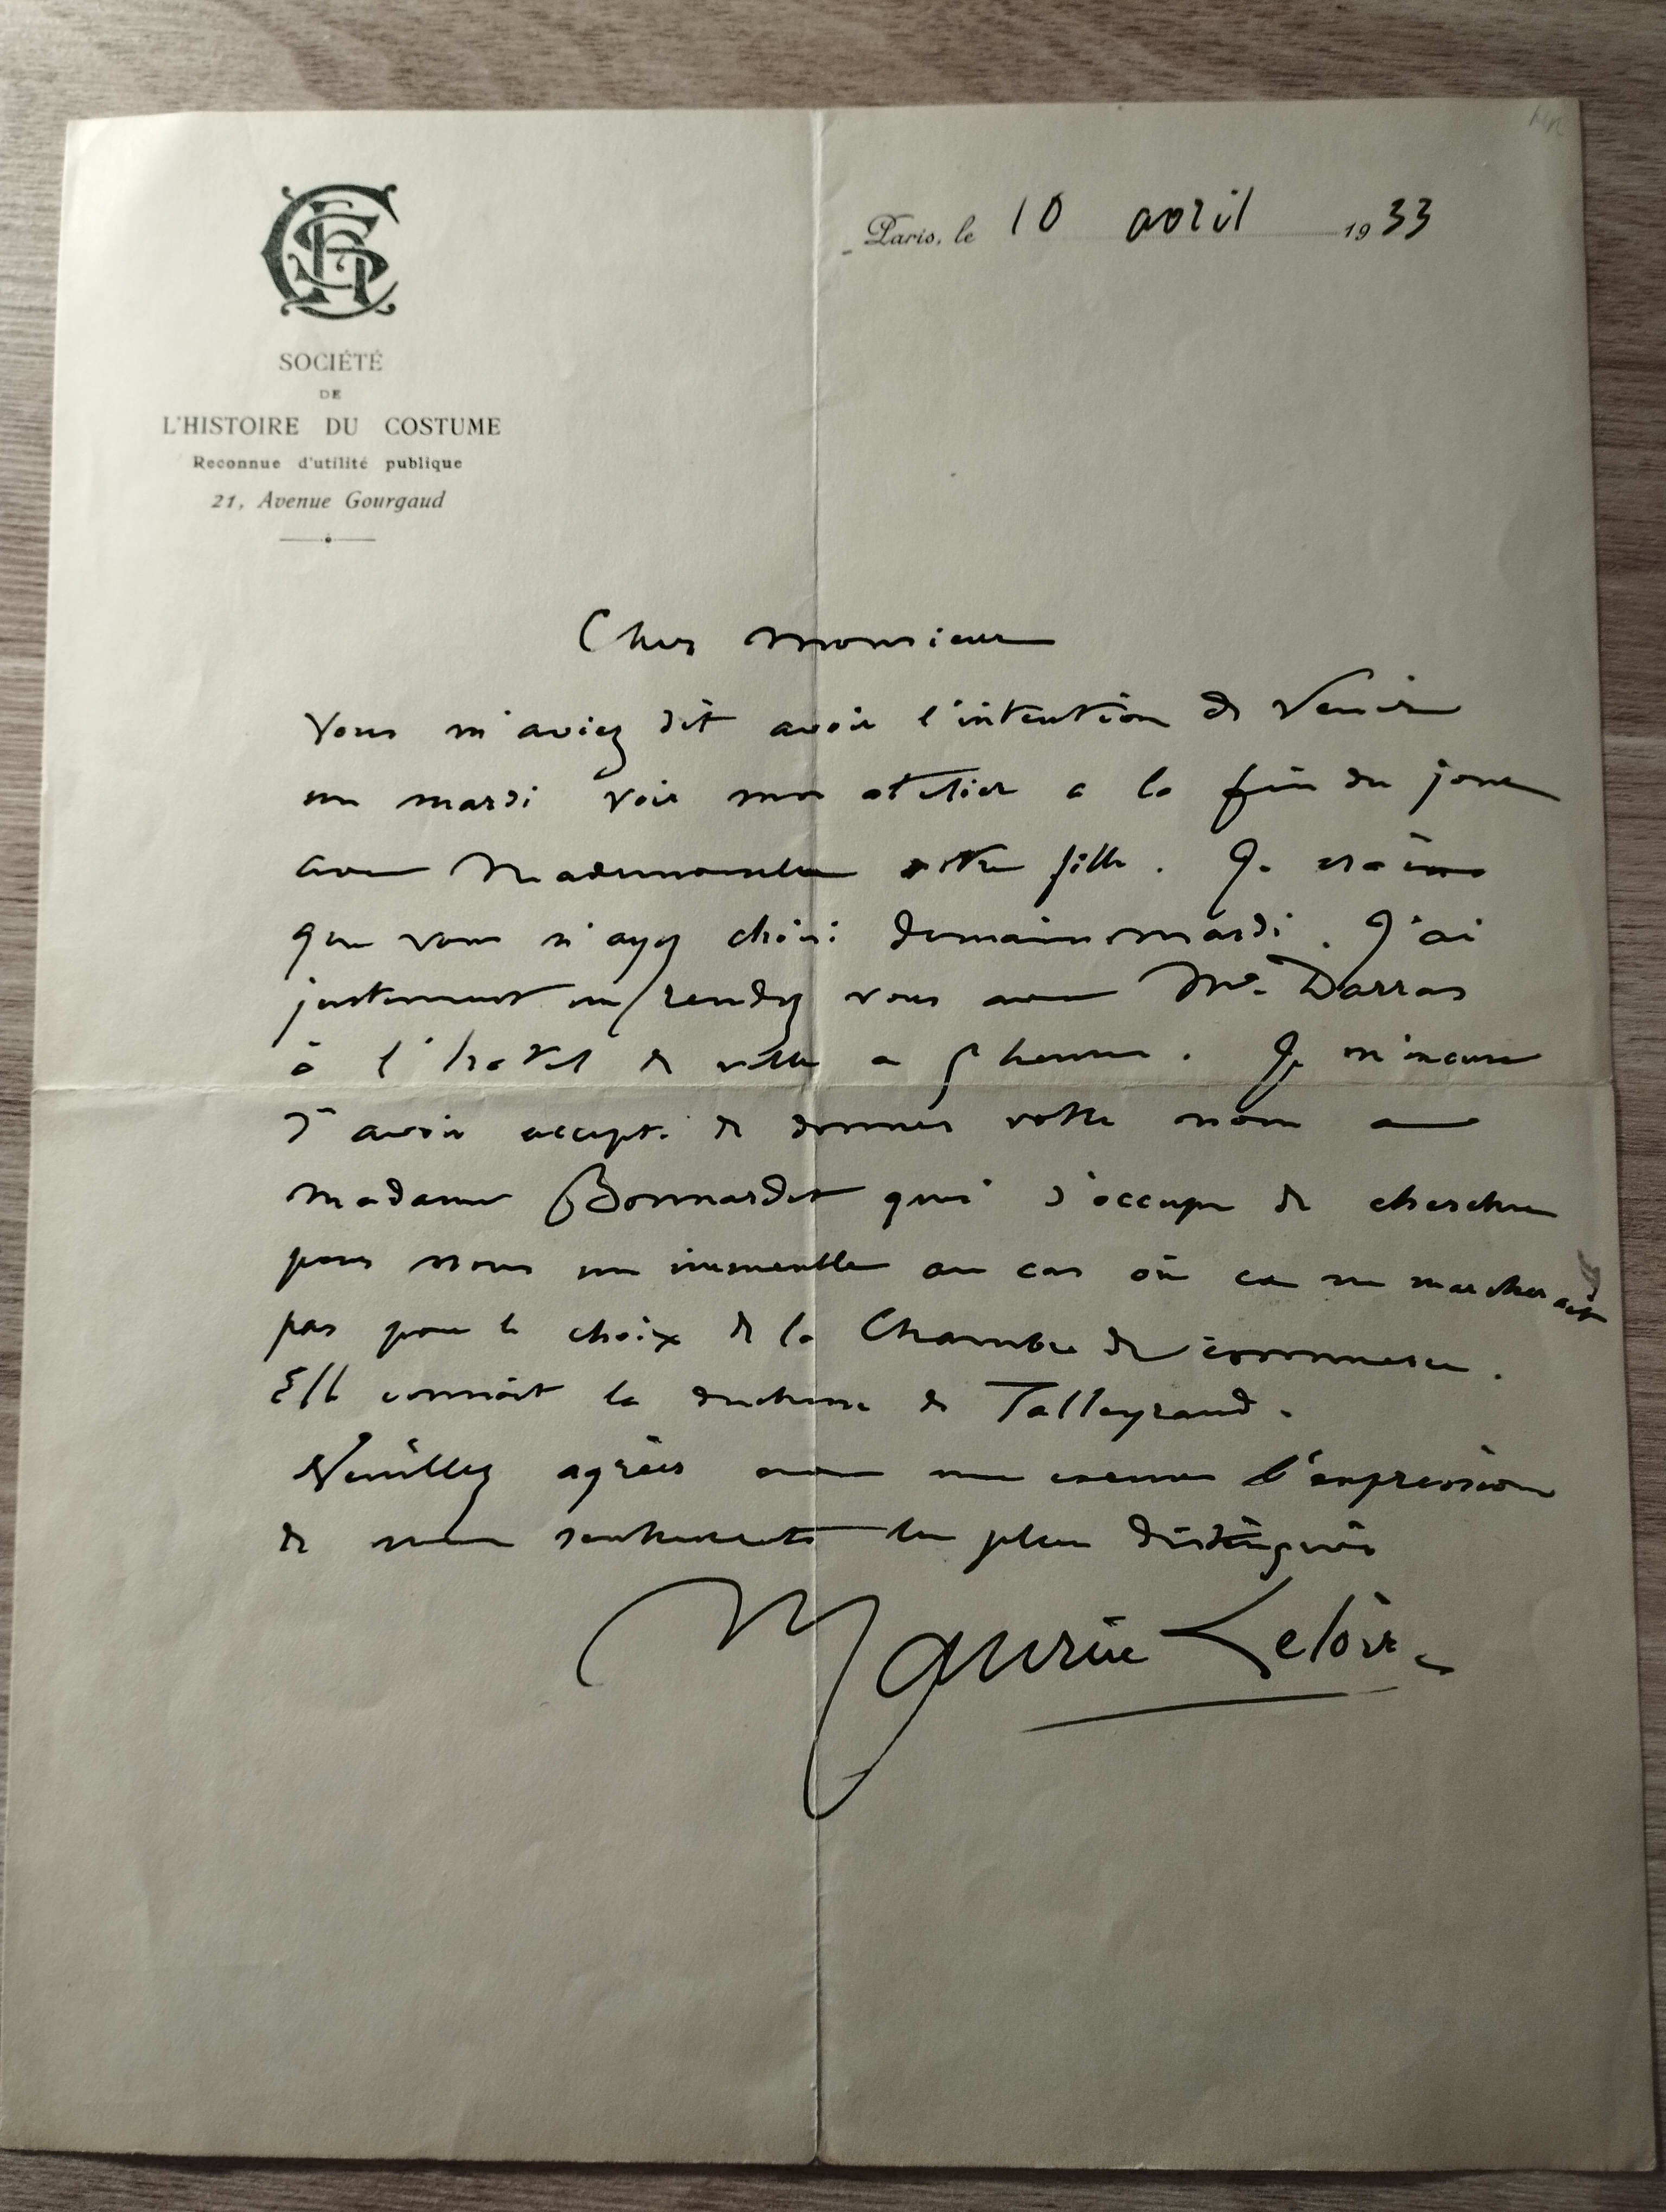 SOCIÉTÉ
DE
L'HISTOIRE DU COSTUME
Reconnue d'utilité publique
21, Avenue Gourgaud
Paris, le 10 avril 1933
Cher Monsieur
Vous m'aviez dit avoir l'intention de venir
un mardi voir mon atelier a la fin du jour
avec Mademoiselle votre fille. Je crains
que vous n'ayez choisi demain mardi. J'ai
justement un rendez vous avec Mr. Darras
à l'hotel de ville a 5 heures. Je m'excuse
d'avoir accepté de donner votre nom a
Madame Bonnardet qui s'occupe de chercher
pour nous un immeuble au cas où ca ne marcherait
pas pour le choix de la Chambre de commerce.
Elle connait la duchesse de Talleyrand.
Veuillez agréer avec mes excuses l'expression
de mes sentiments les plus distingués
Maurice Leloir